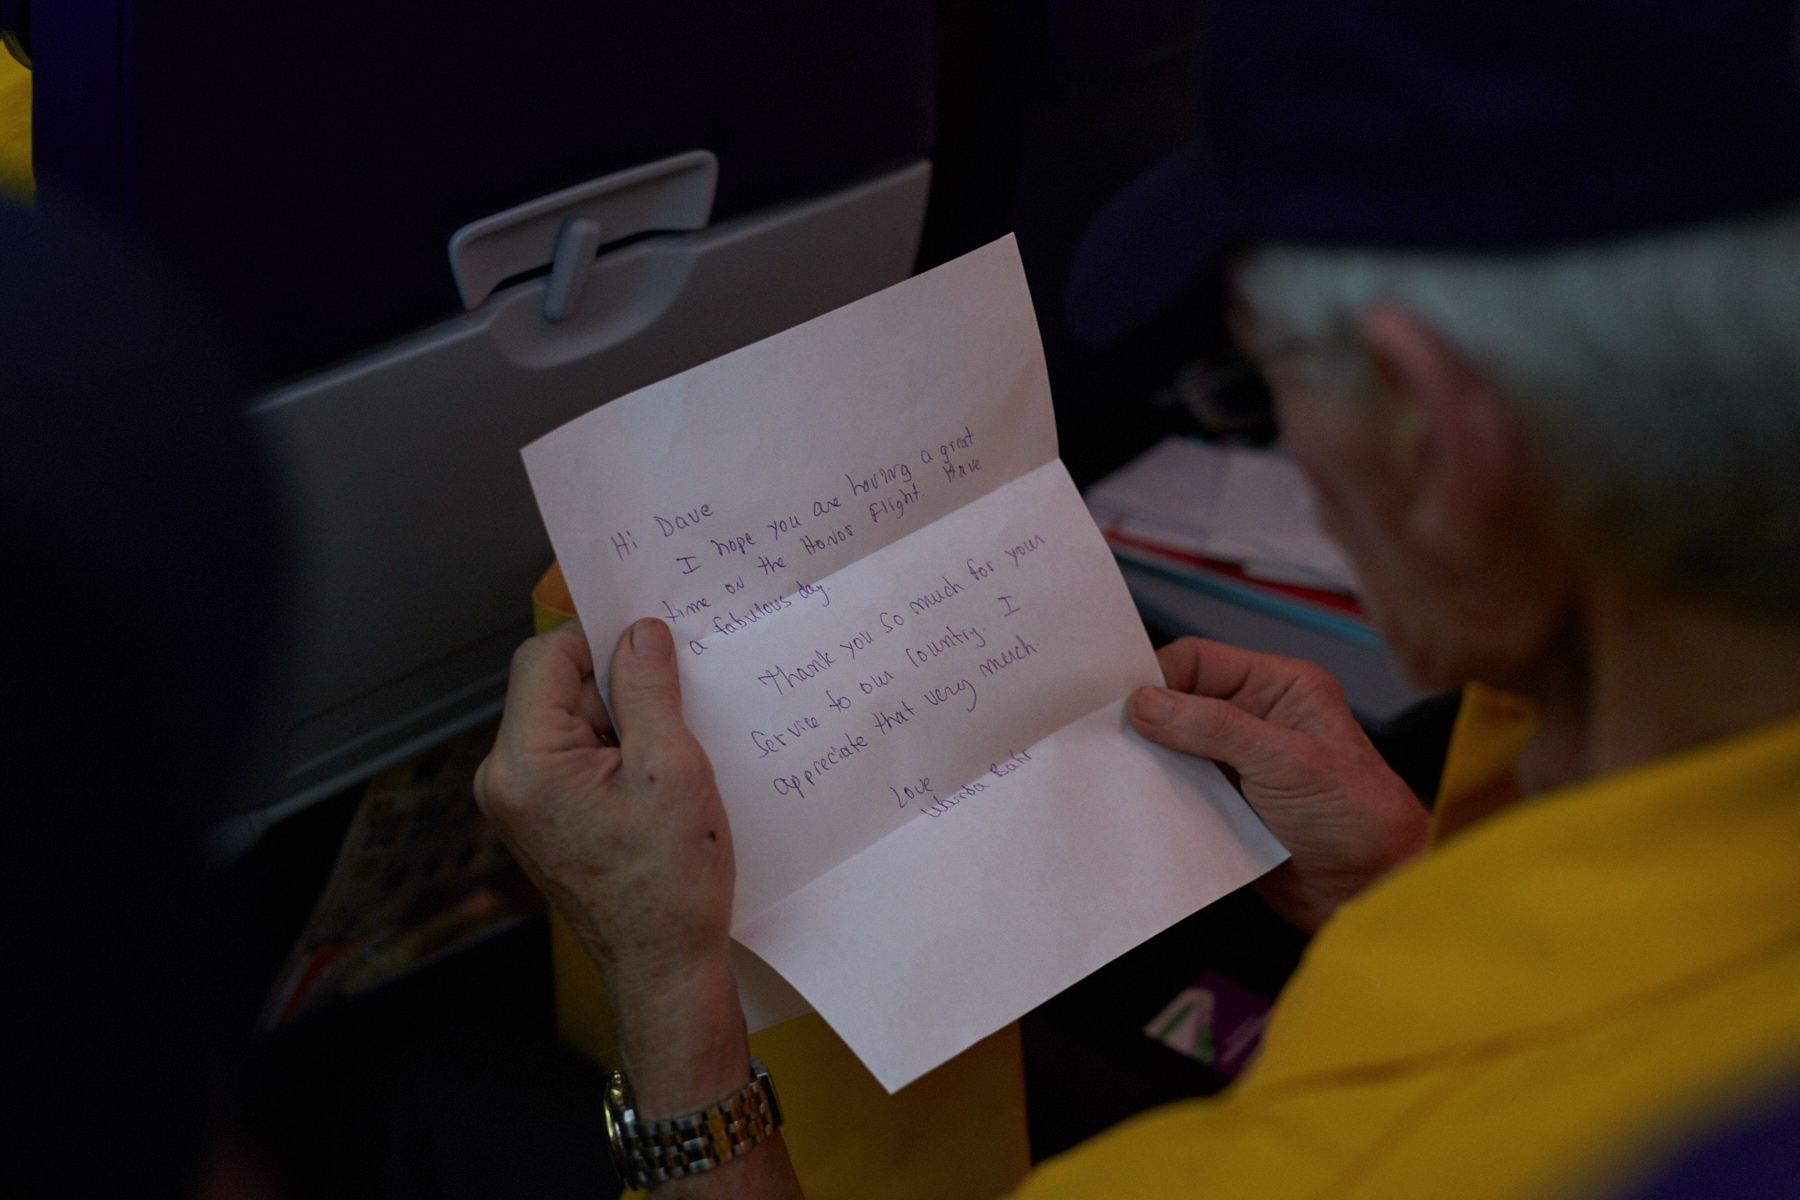 Hi Dave
I hope you are having a great
time on the Honor Flight. Have
a fabulous day.
Thank you so much for your
Service to our Country. I
appreciate that very much.
Love
Wanda Bahr